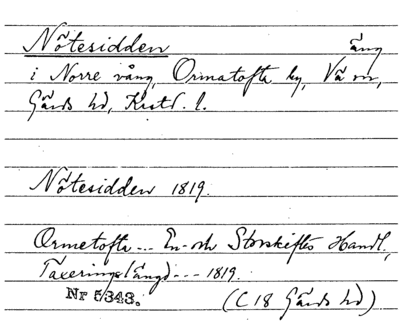 Nötesidden äng
i Norre vång, Ormatofta by, Vä sn,
Gärds hd, Krstd. l.
Nötesidden 1819.
Ormetofta --- En- och Storskiftes Handl.,
Taxeringslängd --- 1819.
Nr 5343. (C 18 Gärds hd)